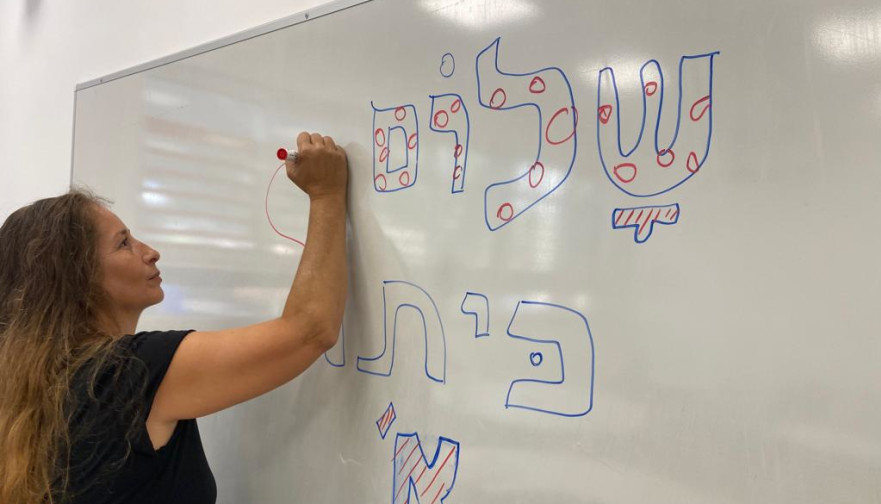 שָלוֹם
כּיתה
א'